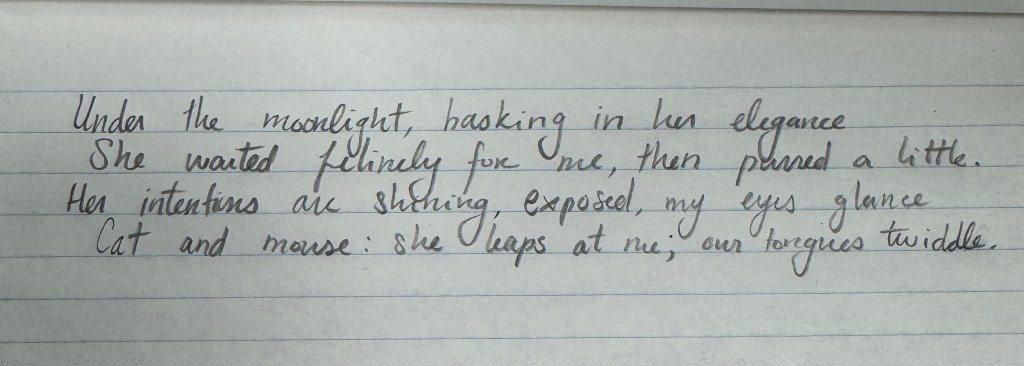 Under the moonlight, basking in her elegance
She waited felinely for me, then purred a little.
Her intentions are shining, exposed, my eyes glance
Cat and mouse: she leaps at me; our tongues twiddle.